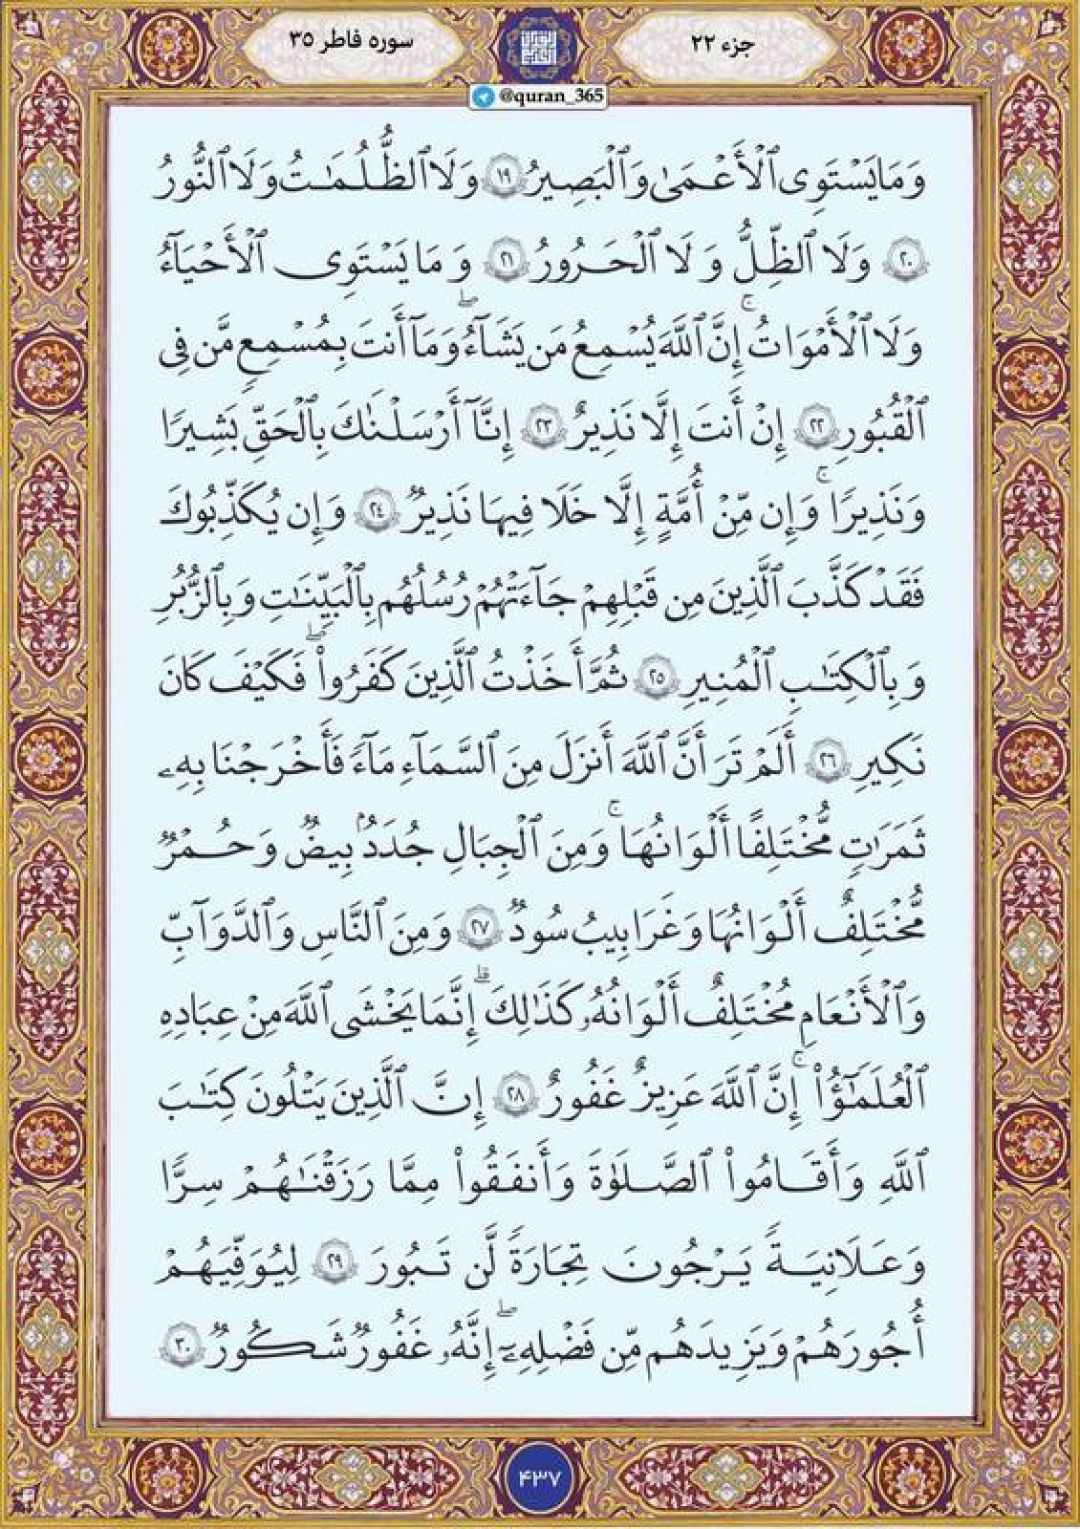 جزء ۲۲
سوره فاطر ۳۵
@quran_365
وَمَا يَسْتَوِى ٱلْأَعْمَىٰ وَٱلْبَصِيرُ ۝١٩ وَلَا ٱلظُّلُمَـٰتُ وَلَا ٱلنُّورُ
۝٢٠ وَلَا ٱلظِّلُّ وَلَا ٱلْحَرُورُ ۝٢١ وَمَا يَسْتَوِى ٱلْأَحْيَآءُ
وَلَا ٱلْأَمْوَاتُ ۚ إِنَّ ٱللَّهَ يُسْمِعُ مَن يَشَآءُ ۖ وَمَآ أَنتَ بِمُسْمِعٍ مَّن فِى
ٱلْقُبُورِ ۝٢٢ إِنْ أَنتَ إِلَّا نَذِيرٌ ۝٢٣ إِنَّآ أَرْسَلْنَـٰكَ بِٱلْحَقِّ بَشِيرًا
وَنَذِيرًا ۚ وَإِن مِّنْ أُمَّةٍ إِلَّا خَلَا فِيهَا نَذِيرٌ ۝٢٤ وَإِن يُكَذِّبُوكَ
فَقَدْ كَذَّبَ ٱلَّذِينَ مِن قَبْلِهِمْ جَآءَتْهُمْ رُسُلُهُم بِٱلْبَيِّنَـٰتِ وَبِٱلزُّبُرِ
وَبِٱلْكِتَـٰبِ ٱلْمُنِيرِ ۝٢٥ ثُمَّ أَخَذْتُ ٱلَّذِينَ كَفَرُوا۟ ۖ فَكَيْفَ كَانَ
نَكِيرِ ۝٢٦ أَلَمْ تَرَ أَنَّ ٱللَّهَ أَنزَلَ مِنَ ٱلسَّمَآءِ مَآءً فَأَخْرَجْنَا بِهِۦ
ثَمَرَٰتٍ مُّخْتَلِفًا أَلْوَانُهَا ۚ وَمِنَ ٱلْجِبَالِ جُدَدٌۢ بِيضٌ وَحُمْرٌ
مُّخْتَلِفٌ أَلْوَانُهَا وَغَرَابِيبُ سُودٌ ۝٢٧ وَمِنَ ٱلنَّاسِ وَٱلدَّوَآبِّ
وَٱلْأَنْعَامِ مُخْتَلِفٌ أَلْوَانُهُۥ كَذَٰلِكَ ۗ إِنَّمَا يَخْشَى ٱللَّهَ مِنْ عِبَادِهِ
ٱلْعُلَمَـٰٓؤُا۟ ۚ إِنَّ ٱللَّهَ عَزِيزٌ غَفُورٌ ۝٢٨ إِنَّ ٱلَّذِينَ يَتْلُونَ كِتَـٰبَ
ٱللَّهِ وَأَقَامُوا۟ ٱلصَّلَوٰةَ وَأَنفَقُوا۟ مِمَّا رَزَقْنَـٰهُمْ سِرًّا
وَعَلَانِيَةً يَرْجُونَ تِجَارَةً لَّن تَبُورَ ۝٢٩ لِيُوَفِّيَهُمْ
أُجُورَهُمْ وَيَزِيدَهُم مِّن فَضْلِهِۦٓ ۚ إِنَّهُۥ غَفُورٌ شَكُورٌ ۝٣٠
۴۳۷